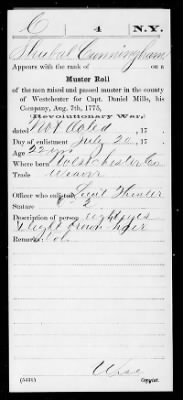 C 4 N.Y.
Shubal Cunningham
Appears with the rank of on a
Muster Roll
of the men raised and passed muster in the county
of Westchester for Capt. Daniel Mills, his
Company, Aug. 7th, 1775,
(Revolutionary War,)
dated Not dated, 17
Day of enlistment July 20, 17
Age 22 yrs
Where born Westchester Co
Trade Weaver
Officer who enlisted Lieut Hunter
Stature 2
Description of person eyes
light brown hair
Remarks:
Copyist.